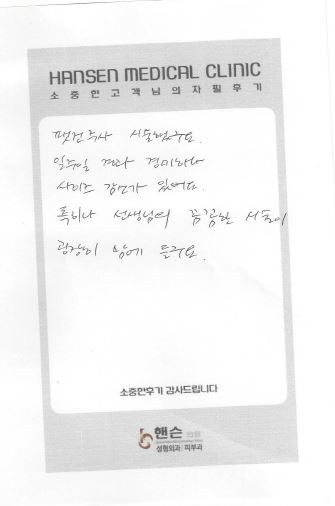 HANSEN MEDICAL CLINIC
소중한고객님의자필후기
팻컷주사 시술했구요.
일주일 경과 경미하나
사이즈 감소가 있어요.
특히나 선생님의 꼼꼼한 시술이
굉장히 맘에 들구요.
소중한후기 감사드립니다
핸슨 의원
성형외과 피부과